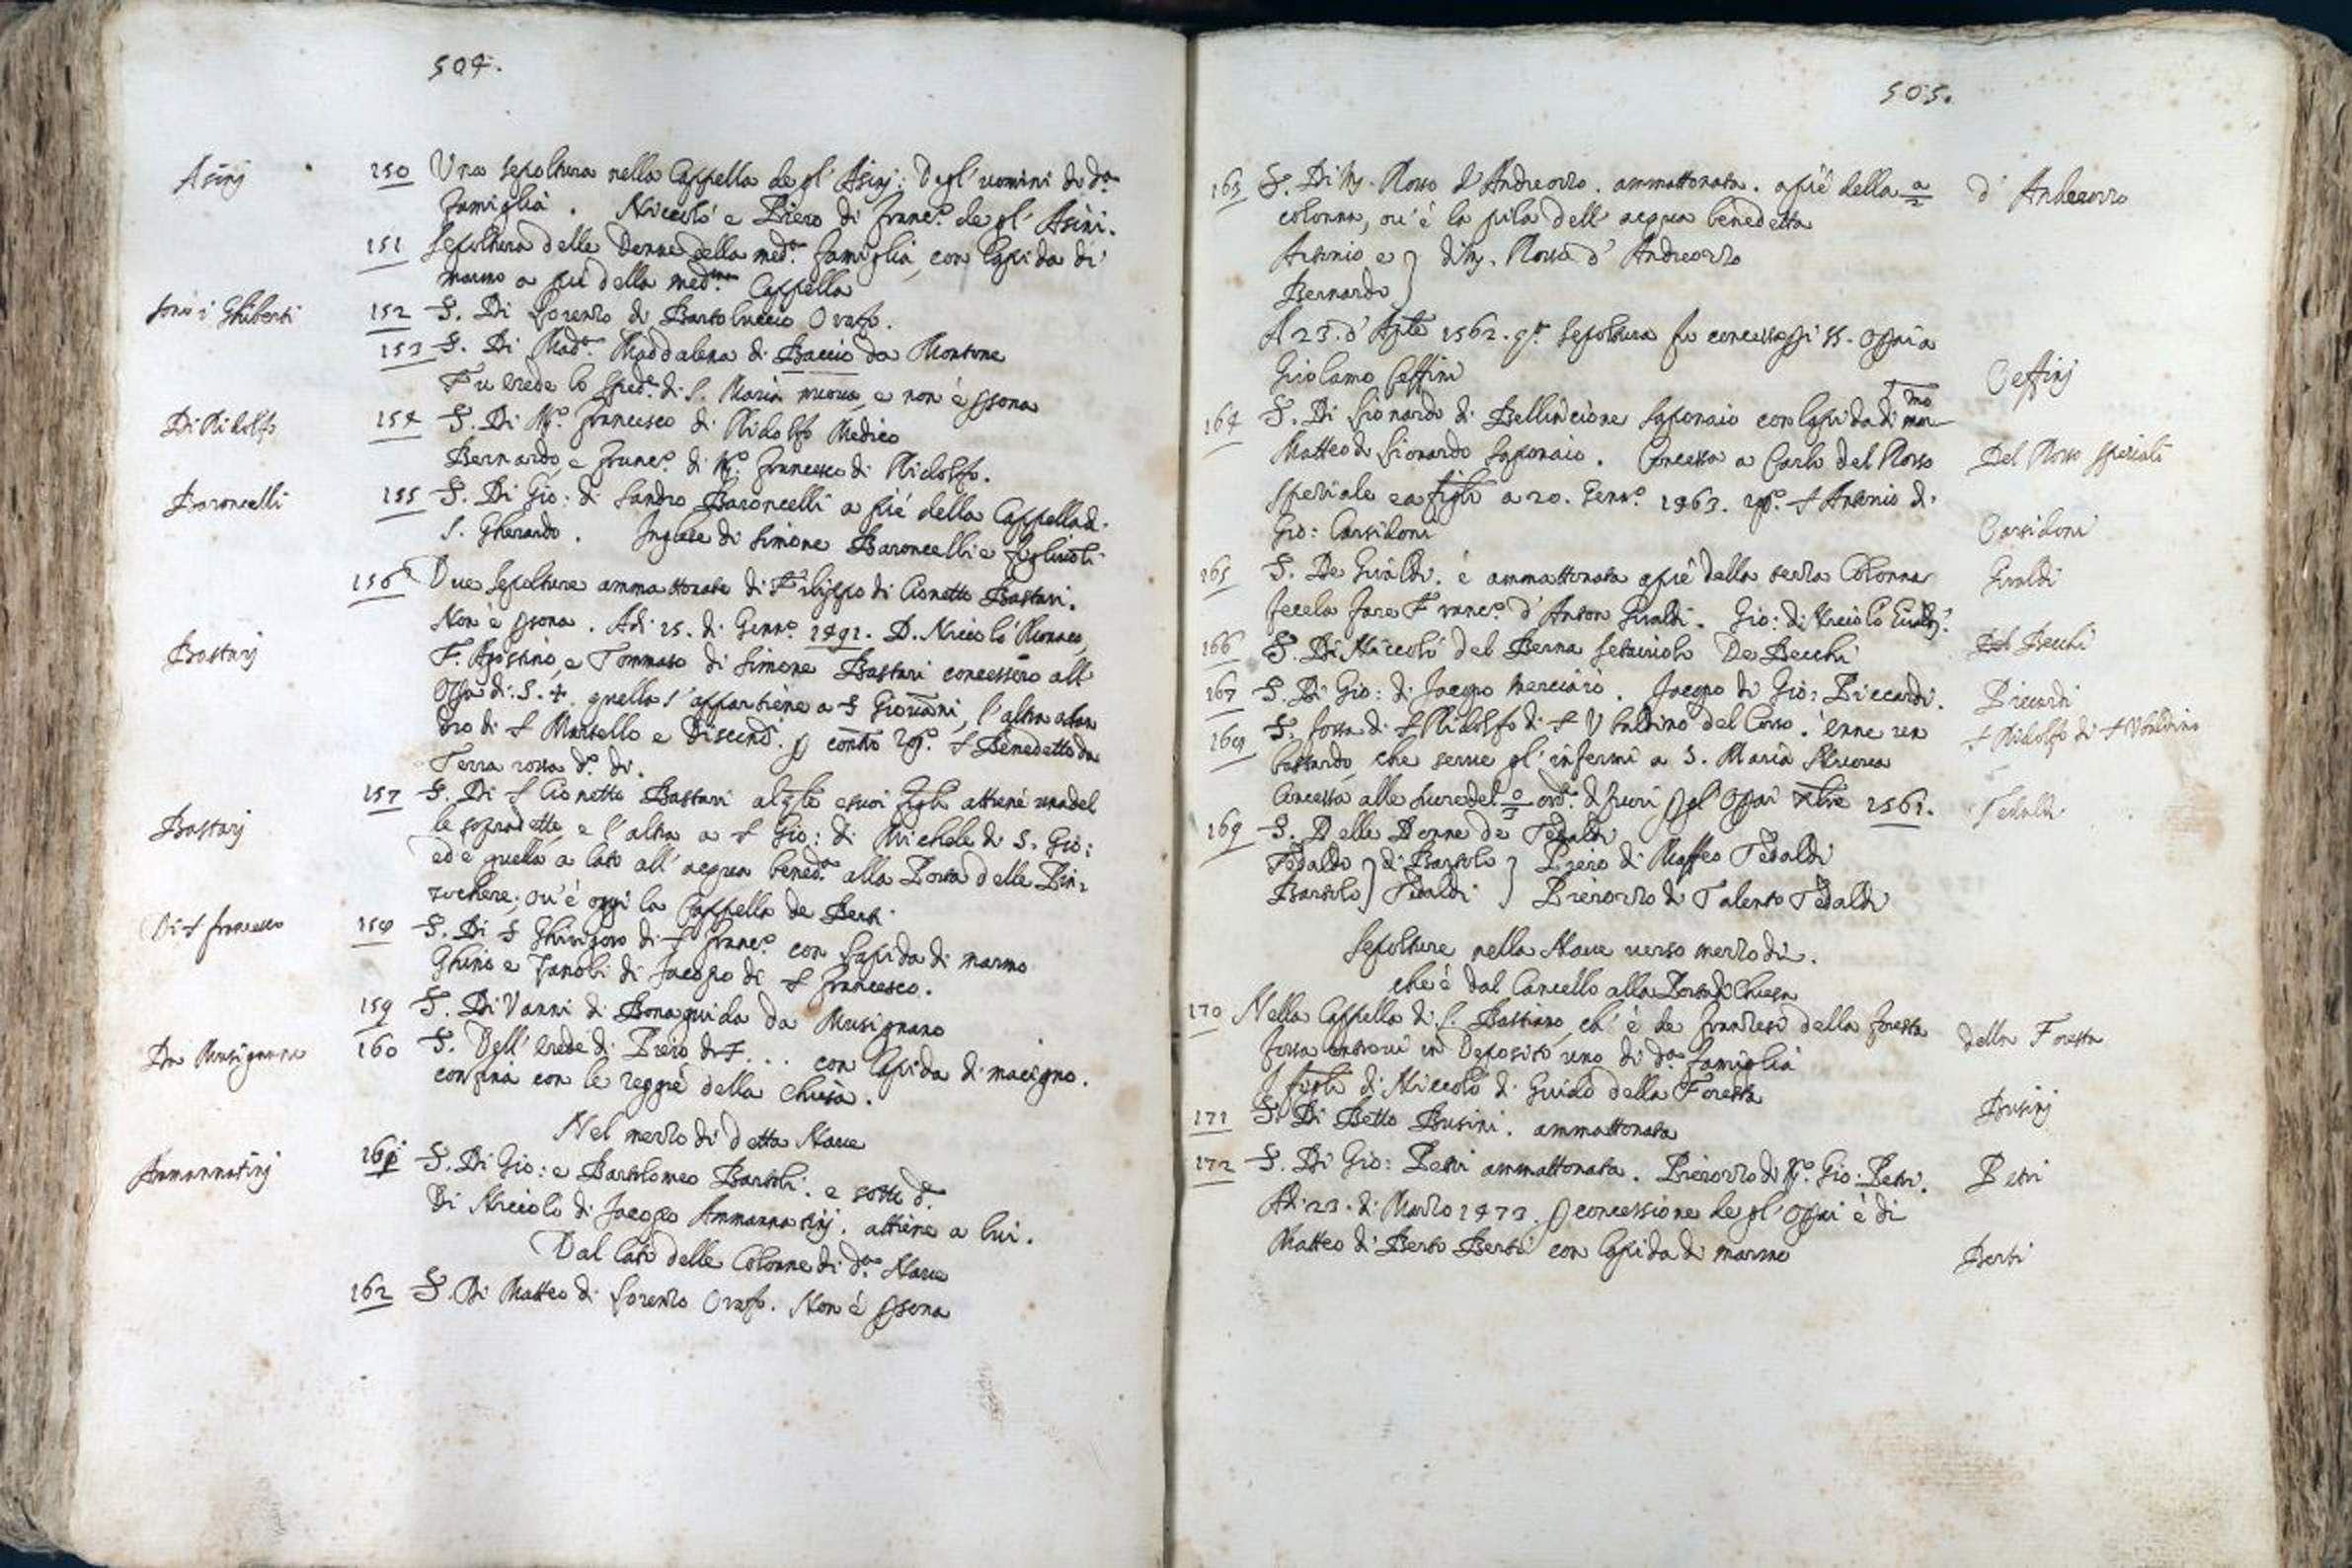 504.
Asinj
150 Una sepoltura nella Cappella de gl' Asinj: Degl' uomini di d.a
famiglia. Niccolò e Piero di Franc.o de gl' Asini.
151 Sepoltura delle Donne della med.a famiglia, con lapida di
marmo a piè della med.ma Cappella
Ghiberti
152 S. Di Lorenzo di Bartoluccio Orafo.
153 S. Di Mad.a Maddalena di Baccio da Montone
Fu erede lo Sped.e di S. Maria nuova, e non è psona
Di Ridolfo
154 S. Di M.o Francesco di Ridolfo Medico
Bernardo, e Franc.o di M.o Francesco di Ridolfo.
Baroncelli
155 S. Di Gio: di Sandro Baroncelli a piè della Cappella di
S. Gherardo. Inghilese di Simone Baroncelli e figlivoli
156 Due Sepolture ammattonate di Filippo di Cionetto Bastari.
Non è psona. Adi 25. di Genn.o 1491. D. Niccolò Monaco,
Bastarj
F. Agostino, e Tommaso di Simone Bastari concessero all'
Opa di S. +. quella s'appartiene a S Giovãni, l'altra a
dro di S Martello e Discend. p contto S Benedetto da
Terra rossa d.o di.
157 S. Di S Cionetto Bastari e suoi figli attiene una del
Bastarj
le sopradette, e l'altra a S Gio: di Michele di S. Gio:
ed è quella a lato all' acqua bened.a alla Porta delle Pin,
zochere; ov'è oggi la Cappella de Berti.
Di S Francesco
158 S. Di S Ghirigoro di S Franc.o con lapida di marmo
Ghino e Zanobi di Jacopo di S Francesco.
159 S. Di Vanni di Bonaguida da Musignano
Da Musignano
160 S. Dell' erede di Piero di F... con lapida di macigno.
confina con le reggie della Chiesa.
Nel mezzo di detta Nave
Ammannatinj
161 S. Di Gio: e Bartolomeo Bartoli. e sotto d.
Di Niccolò di Jacopo Ammannatinj. attiene a lui.
Dal lato delle Colonne di d.a Nave
162 S. Di Matteo di Lorenzo Orafo. Non è psona
505.
163 S. Di M. Rosso d'Andreozzo. ammattonata. a piè della 2/a
d' Andreozzo
colonna, ov'è la pila dell' acqua benedetta
Antonio e } di M. Rosso d' Andreozzo
Bernardo }
A 23. d' Aple 1562. q.a Sepoltura fu concessa pi SS. Opai a
Girolamo Ceffini
Ceffinj
164 S. Di Lionardo di Bellincione Saponaio con lapida di mar
mo
Matteo di Lionardo Saponaio. Concessa a Carlo del Rosso
Del Rosso Speziali
Speziale e a figli a 20. Genn.o 1463. S Antonio di
Gio: Carsidoni
Carsidoni
165 S. De Giraldi. è ammattonata a piè della terza Colonna
Giraldi
fecela fare Franc.o d'Anton Giraldi. Gio: di Niccolò Giraldi
166 S. Di Niccolò del Berna Setaiuolo De Becchi
Becchi
167 S. Di Gio: di Jacopo Merciaio. Jacopo di Gio: Riccardi.
Riccardi
168 S. Fossa di S Ridolfo di S Ubaldino del Corso. enne un
S Ridolfo di S Ubaldino
bastardo, che serve gl'infermi a S. Maria Nuova
Concessa alle Suore del 3/o ord.e di fuori p gl' Opai Xbre 1561.
Tedaldi
169 S. Delle Donne de Tedaldi
Tedaldo } di Bartolo } Piero di Maffeo Tedaldi
Bartolo } Tedaldi } Pierozzo di Talento Tedaldi
Sepolture nella Nave verso mezzo dì.
che è dal Cancello alla Porta di Chiesa
170 Nella Cappella di S. Bastiano, ch' è de Franzesi della Foresta
della Foresta
fossa entrovi in Deposito uno di d.a famiglia
I figli di Niccolò di Guido della Foresta
171 S. Di Betto Busini. ammattonata
Businj
172 S. Di Gio: Petri ammattonata. Pierozzo di M.o Gio: Petri.
Petri
Adi 23. di Marzo 1473. p concessione de gl' Opai è di
Matteo di Berto Berti con lapida di marmo
Berti